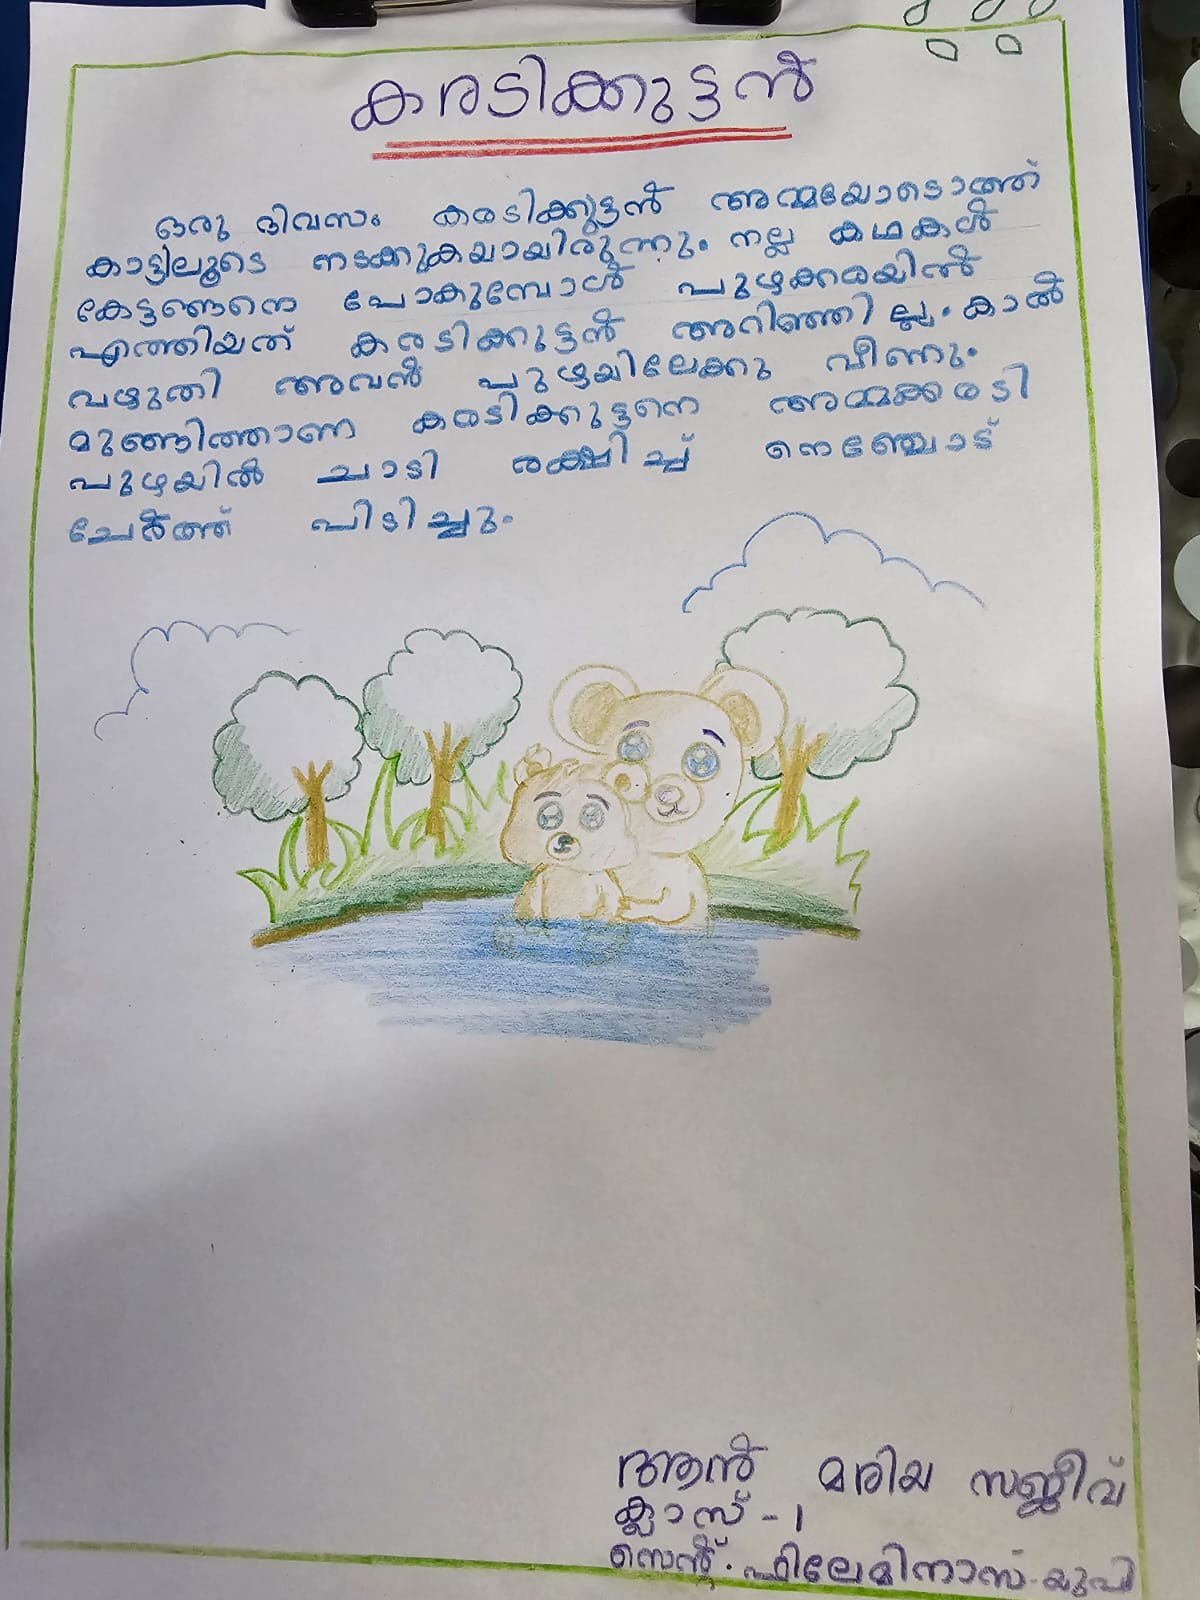 കരടിക്കുട്ടൻ
ഒരു ദിവസം കരടിക്കുട്ടൻ അമ്മയോടൊത്ത്
കാട്ടിലൂടെ നടക്കുകയായിരുന്നു. നല്ല കഥകൾ
കേട്ടങ്ങനെ പോകുമ്പോൾ പുഴക്കരയിൽ
എത്തിയത് കരടിക്കുട്ടൻ അറിഞ്ഞില്ല. കാൽ
വഴുതി അവൻ പുഴയിലേക്കു വീണു.
മുങ്ങിത്താണ കരടിക്കുട്ടനെ അമ്മക്കരടി
പുഴയിൽ ചാടി രക്ഷിച്ച് നെഞ്ചോട്
ചേർത്ത് പിടിച്ചു.
ആൻ മരിയ സജീവ്
ക്ലാസ് - 1
സെന്റ്. ഫിലേമിനാസ് യുപി